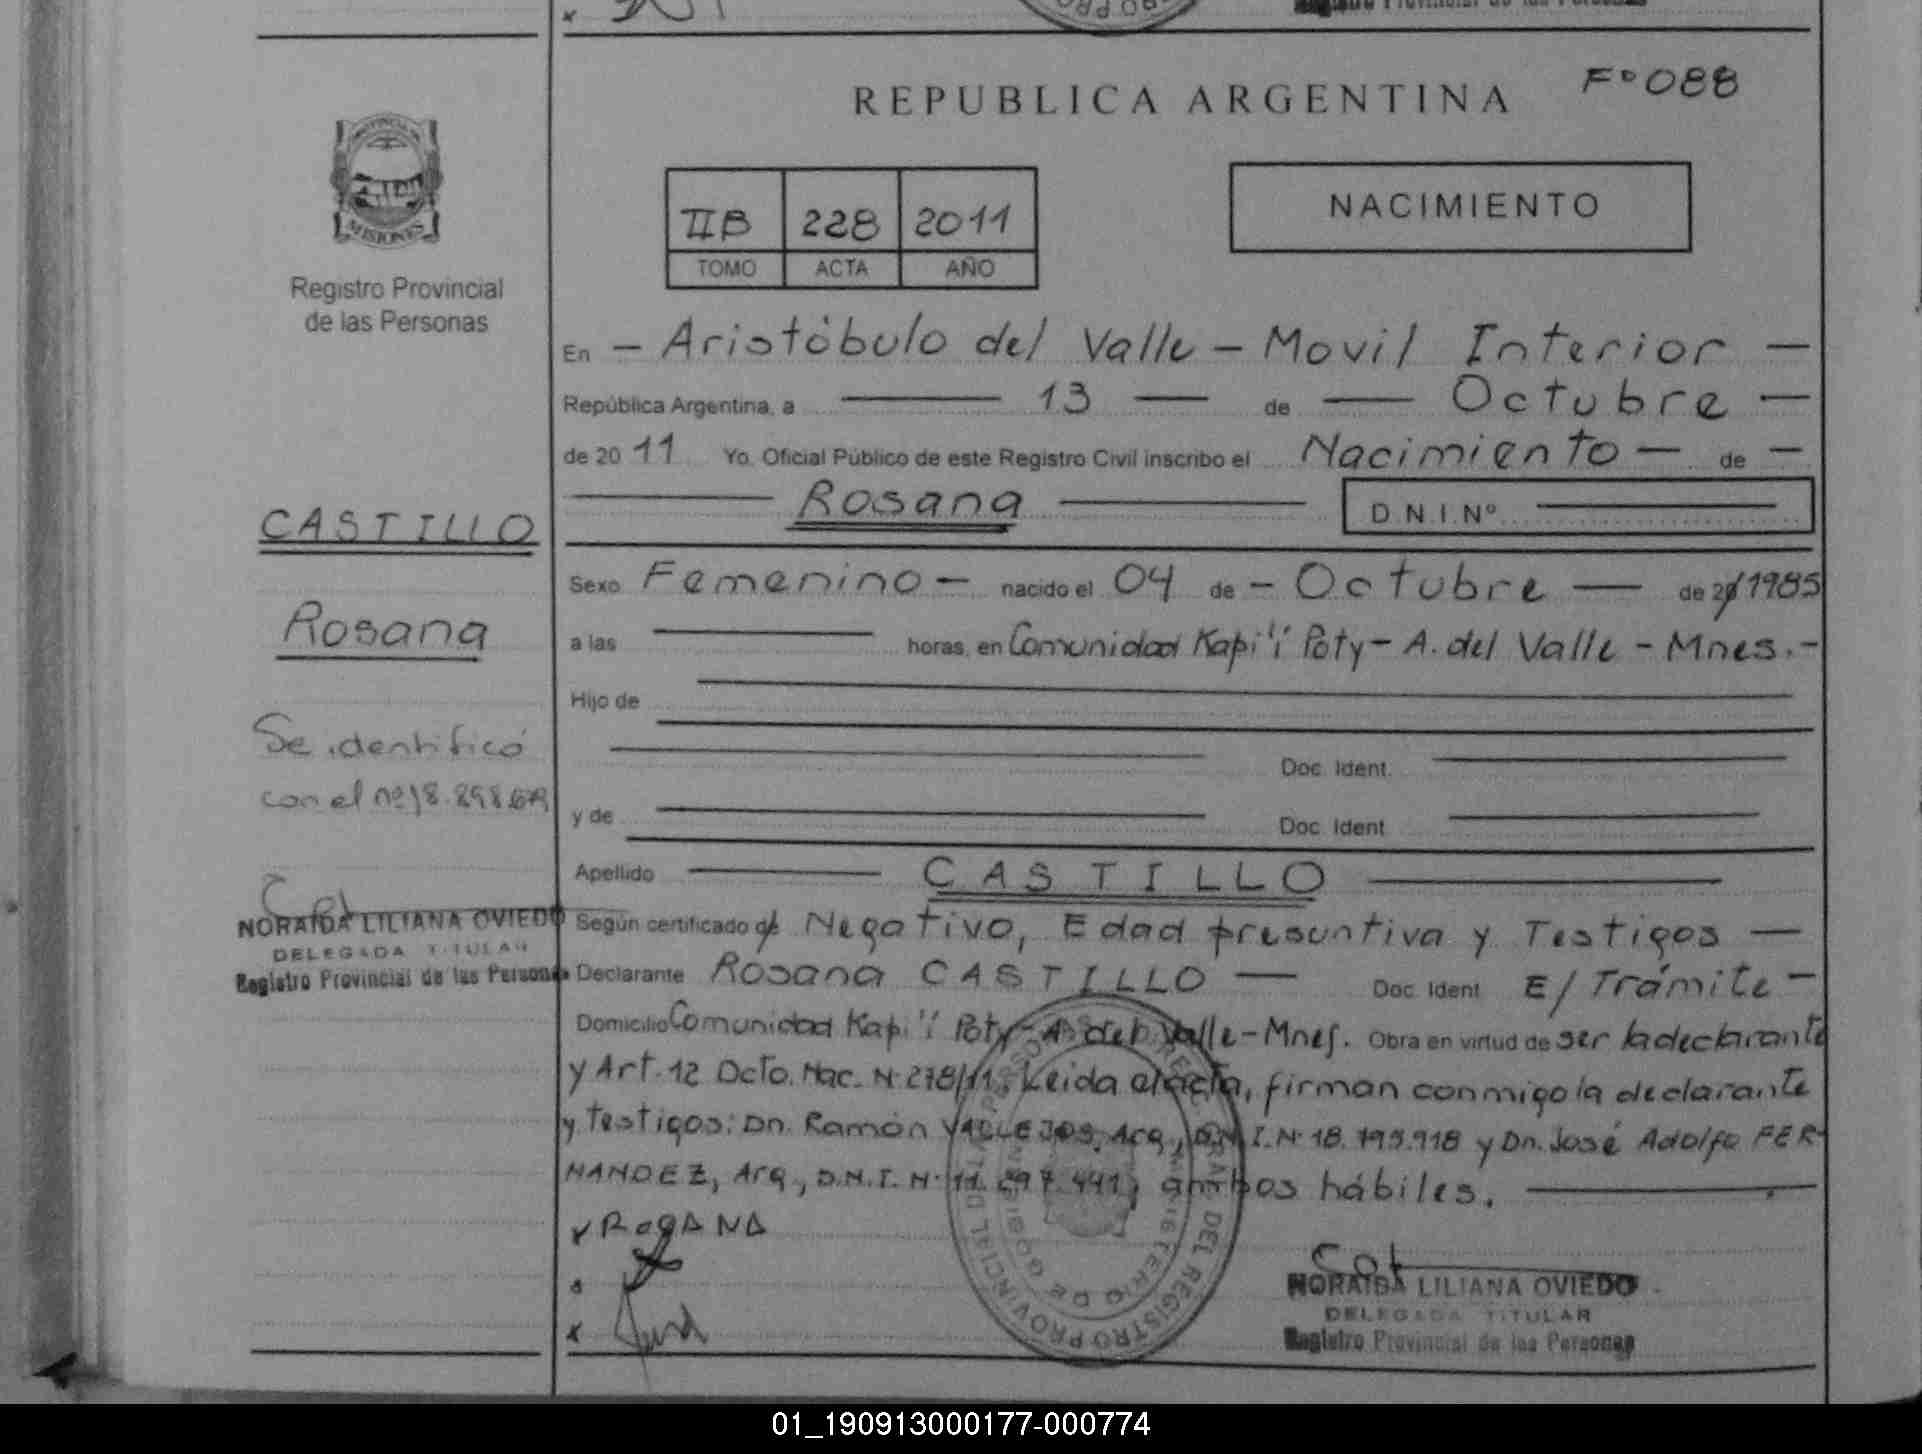 Registro Provincial de las Personas
REPUBLICA ARGENTINA Fº 088
PROVINCIA DE
MISIONES
Registro Provincial
de las Personas
IIB 228 2011
TOMO ACTA AÑO
NACIMIENTO
En - Aristóbulo del Valle - Movil Interior -
República Argentina, a 13 de Octubre -
de 2011 Yo, Oficial Público de este Registro Civil inscribo el Nacimiento - de -
Rosana D.N.I.Nº
CASTILLO
Rosana
Se identificó
con el nº 18.898.679
NORAIDA LILIANA OVIEDO
DELEGADA TITULAR
Registro Provincial de las Personas
Sexo Femenino - nacido el 04 de - Octubre - de 20/1985
a las horas, en Comunidad Kapi'i Poty - A. del Valle - Mnes.-
Hijo de
Doc. Ident.
y de Doc. Ident.
Apellido CASTILLO
Según certificado de Negativo, Edad presuntiva y Testigos -
Declarante Rosana CASTILLO - Doc. Ident. E/Trámite -
Domicilio Comunidad Kapi'i Poty - A. del Valle - Mnes. Obra en virtud de ser la declarante
y Art. 12 Dcto. Nac. Nº 278/11. Leida el acta, firman conmigo la declarante
y testigos: Dn. Ramón VALLEJOS, Arg., D.N.I. Nº 18. y Dn. José Adolfo FER-
NANDEZ, Arg., D.N.I. Nº 11. 441, ambos hábiles.
x ROSANA
x
x
REGISTRO PROVINCIAL DE LAS PERSONAS
MINISTERIO DE GOBIERNO
NORAIDA LILIANA OVIEDO
DELEGADA TITULAR
Registro Provincial de las Personas
01_190913000177-000774